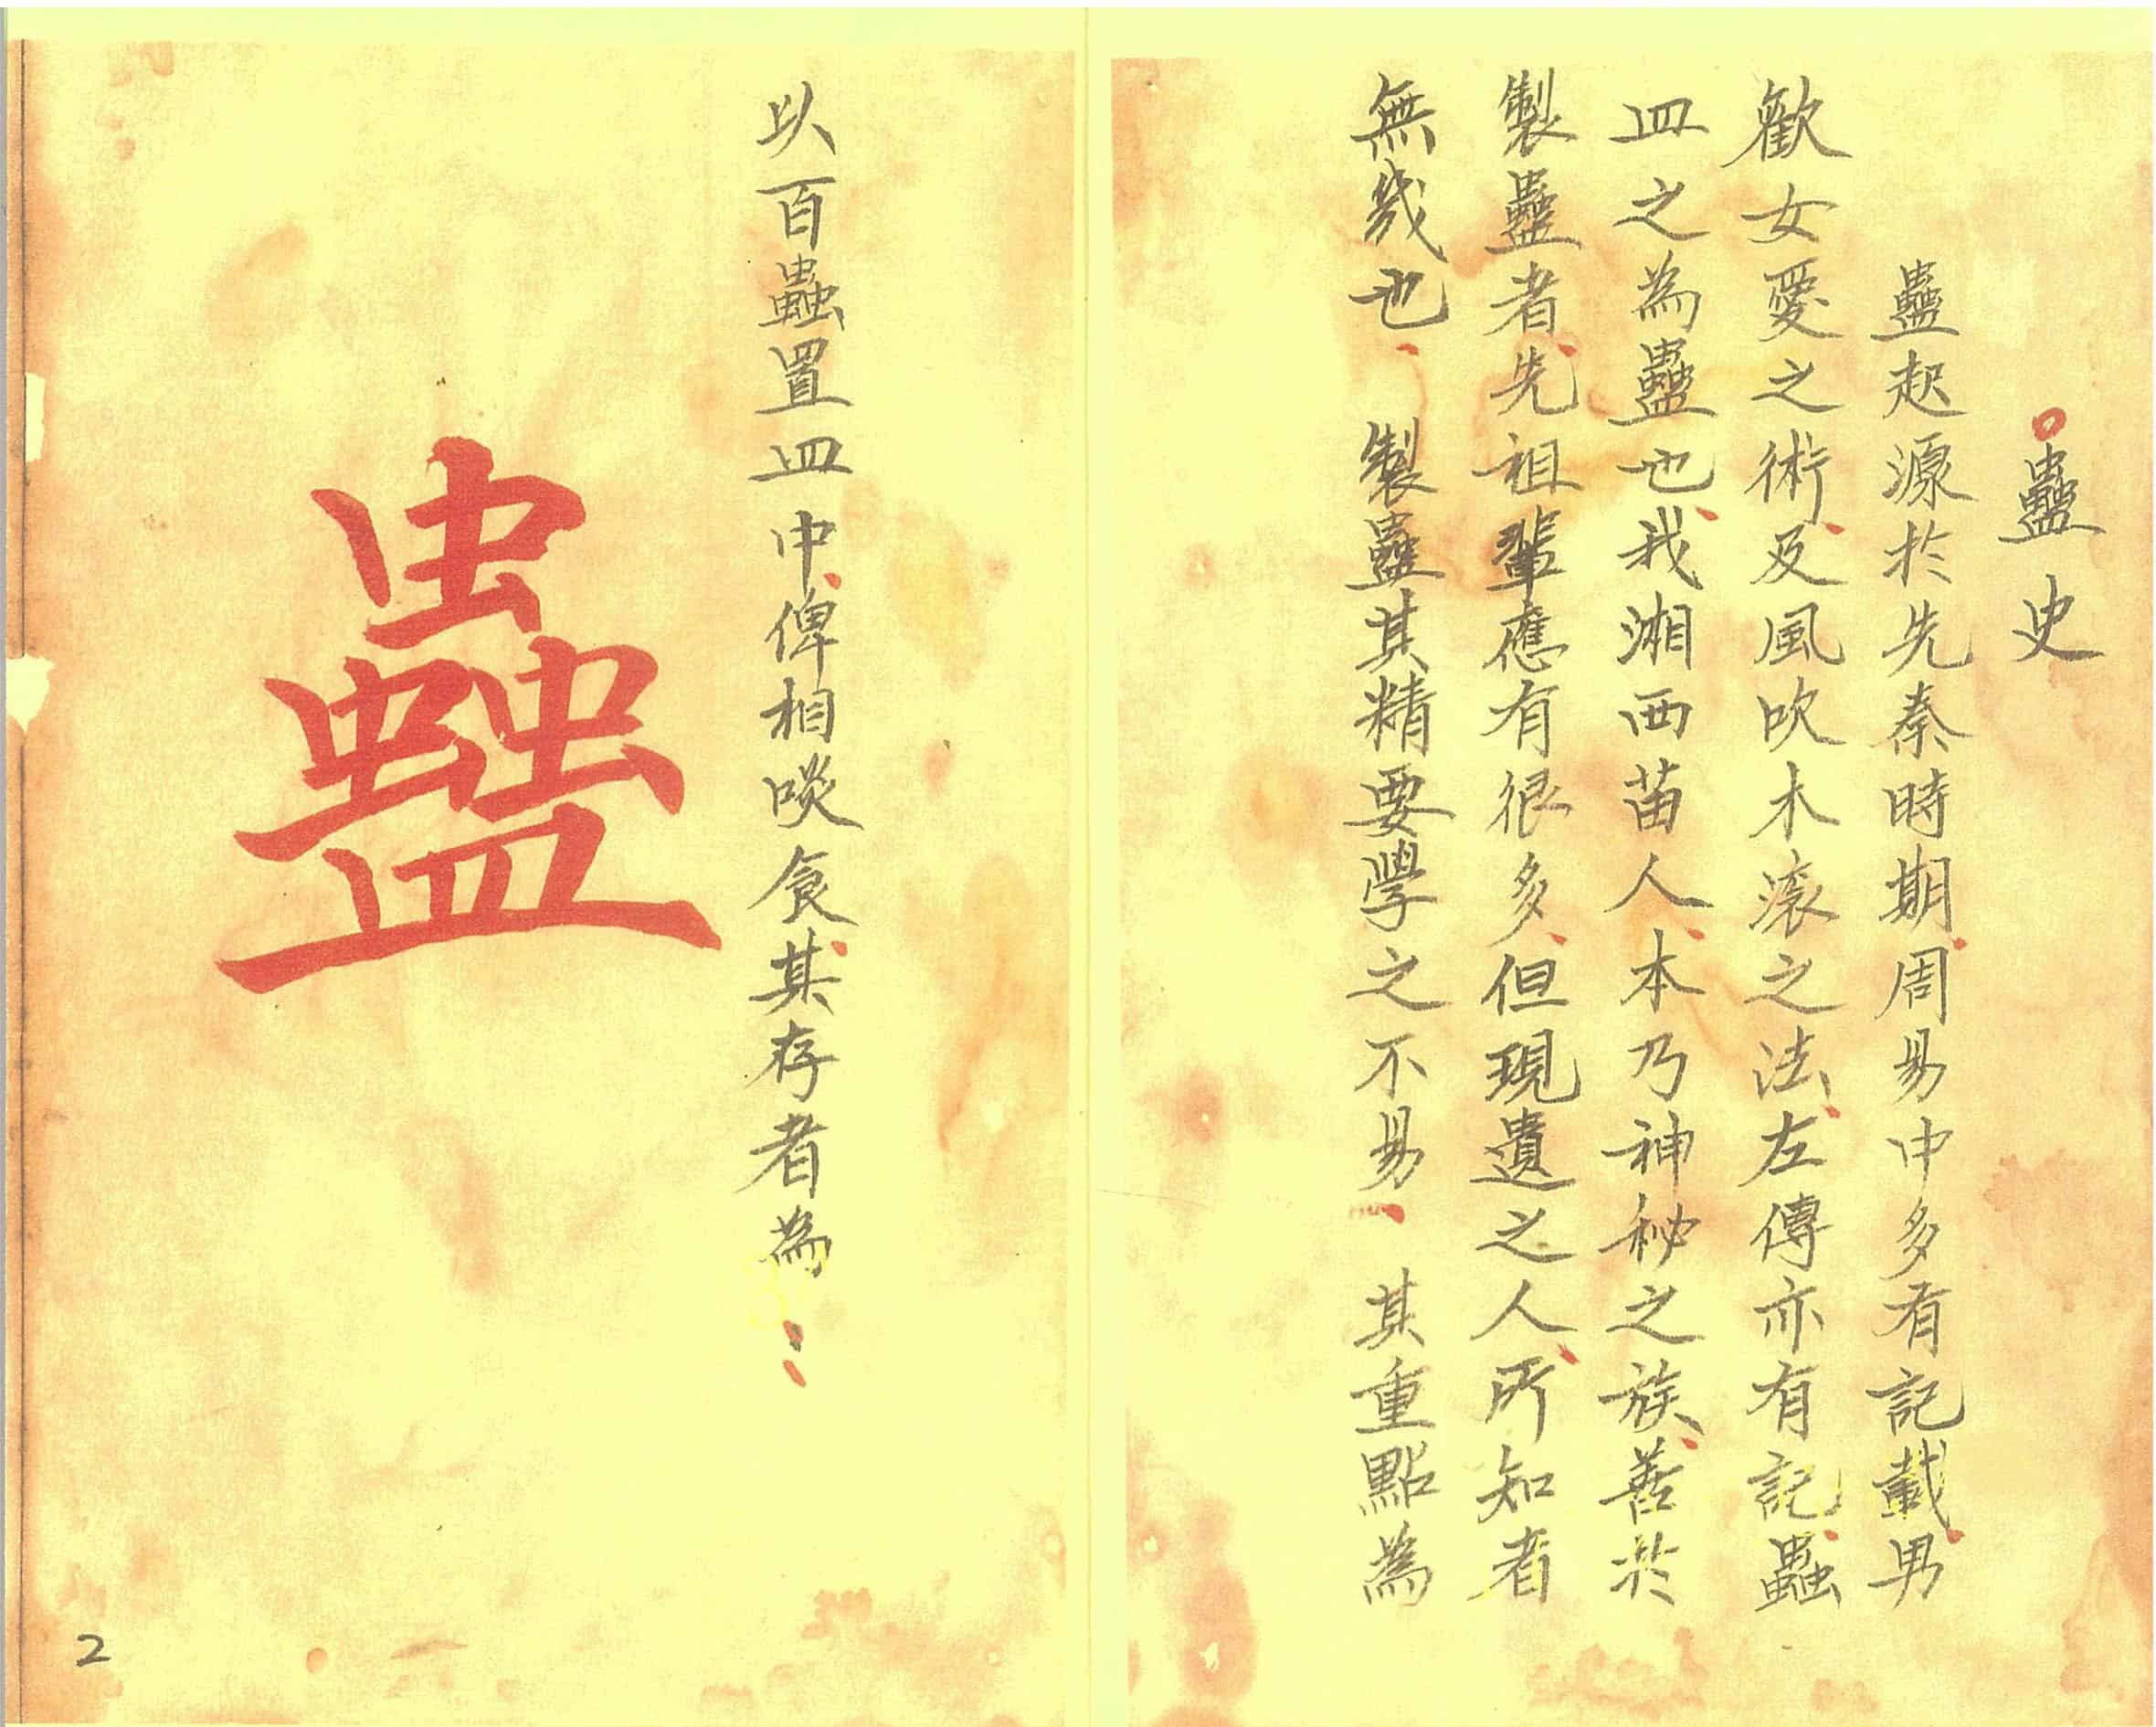 蠱史
蠱起源於先秦時期、周易中多有記載、男
歡女愛之術、及風吹木滾之法、左傳亦有記、蟲
皿之為蠱也、我湘西苗人、本乃神秘之族、善於
製蠱者、先祖輩應有很多、但現遺之人、所知者
無幾也、製蠱其精要學之不易、其重點為
以百蟲置皿中、俾相啖食、其存者為：
蠱
2